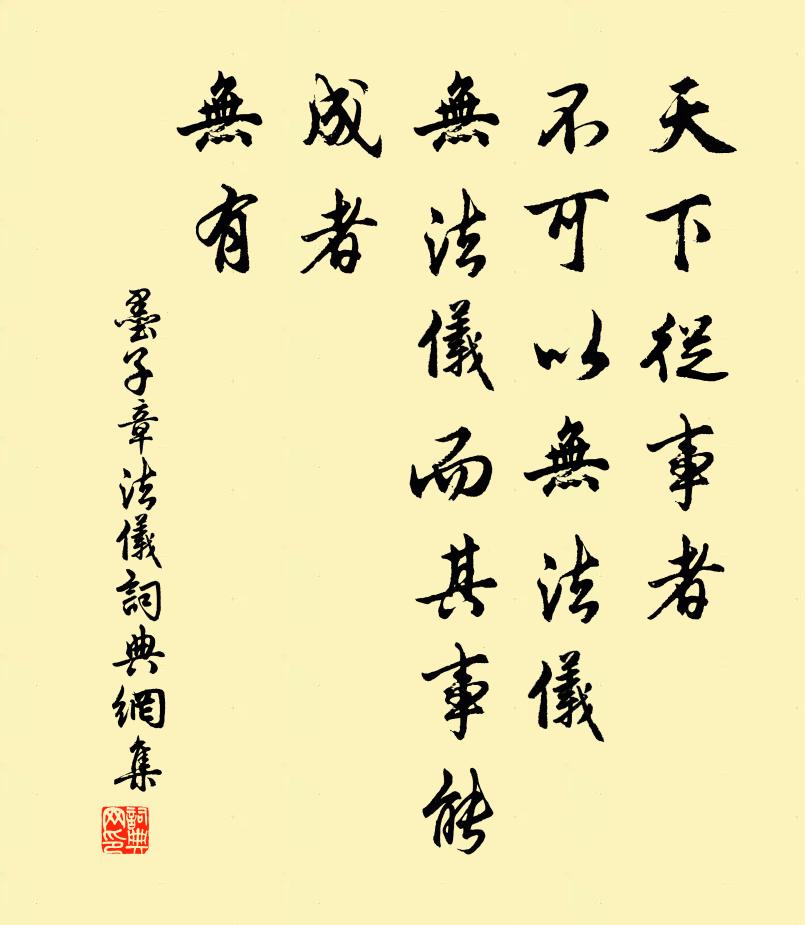 天下從事者
不可以無法儀
無法儀而其事能
成者
無有
墨子章法儀詞典網集
詞典
网印